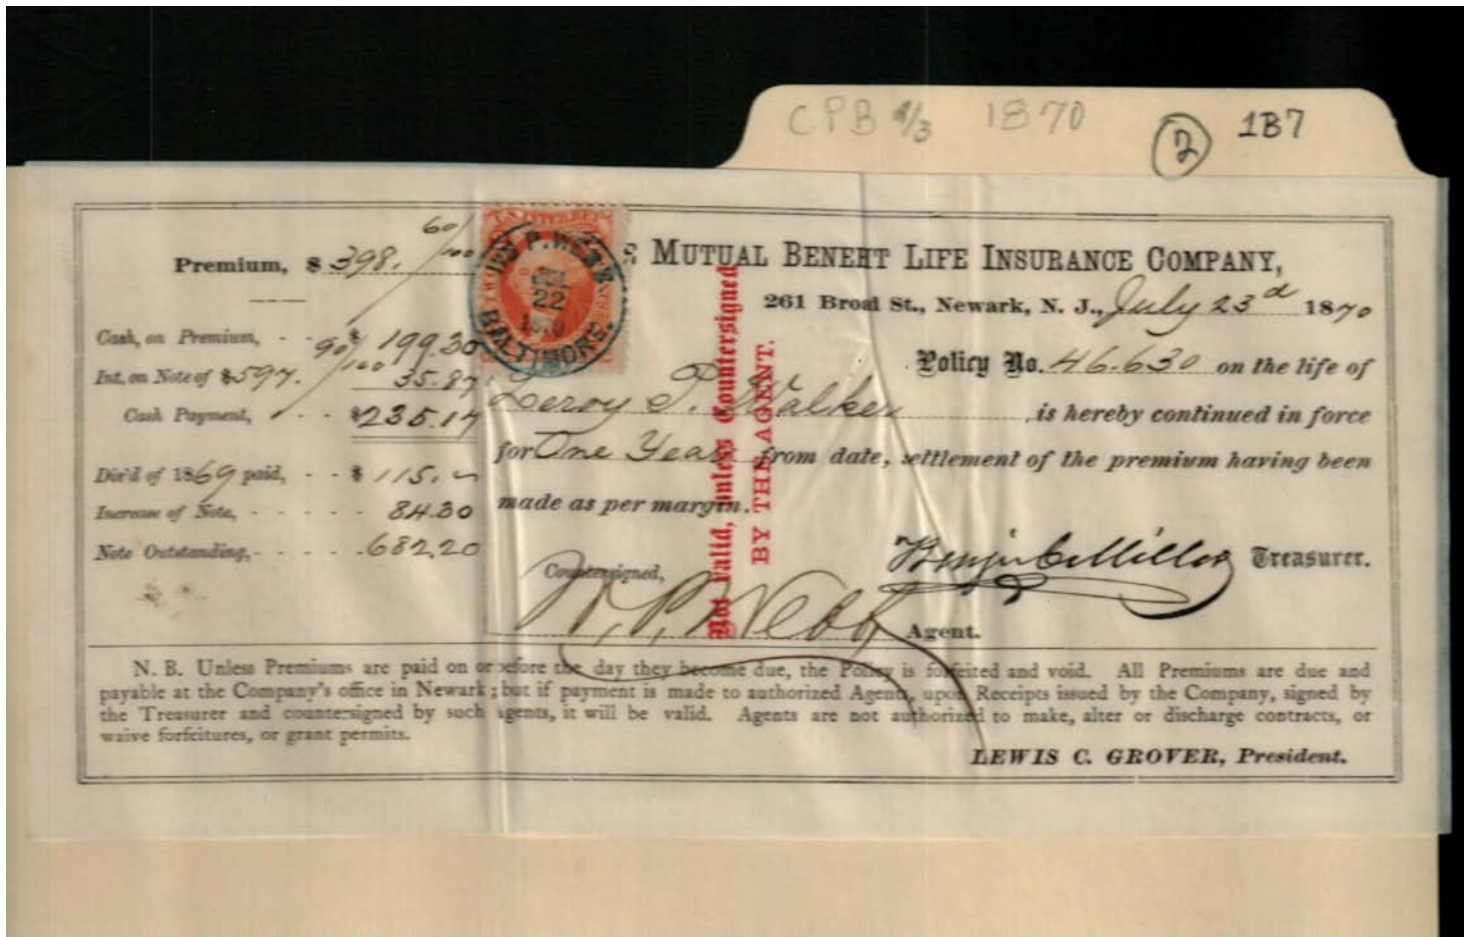 CPB 2/3 1870 2 1B7
Premium, $ 398. 60/100
MUTUAL BENEFIT LIFE INSURANCE COMPANY,
261 Broad St., Newark, N. J., July 23d 1870
Cash, on Premium, - - $ 199.30
Int. on Note of $597. 90/100 35.87
Cash Payment, - - $235.17
Div'd of 1869 paid, - - $ 115.
Increase of Note, - - - - - 84.30
Note Outstanding, - - - - - 682.20
U.S. INTER. REV.
P. WEBB
22
1870
BALTIMORE.
Policy No. 46.630 on the life of
Leroy P. Walker , is hereby continued in force
for One Year from date, settlement of the premium having been
made as per margin.
Not valid, unless Countersigned
BY THE AGENT.
Benjn C Miller Treasurer.
Countersigned,
W. P. Webb Agent.
N. B. Unless Premiums are paid on or before the day they become due, the Policy is forfeited and void. All Premiums are due and
payable at the Company's office in Newark; but if payment is made to authorized Agents, upon Receipts issued by the Company, signed by
the Treasurer and countersigned by such agents, it will be valid. Agents are not authorized to make, alter or discharge contracts, or
waive forfeitures, or grant permits.
LEWIS C. GROVER, President.